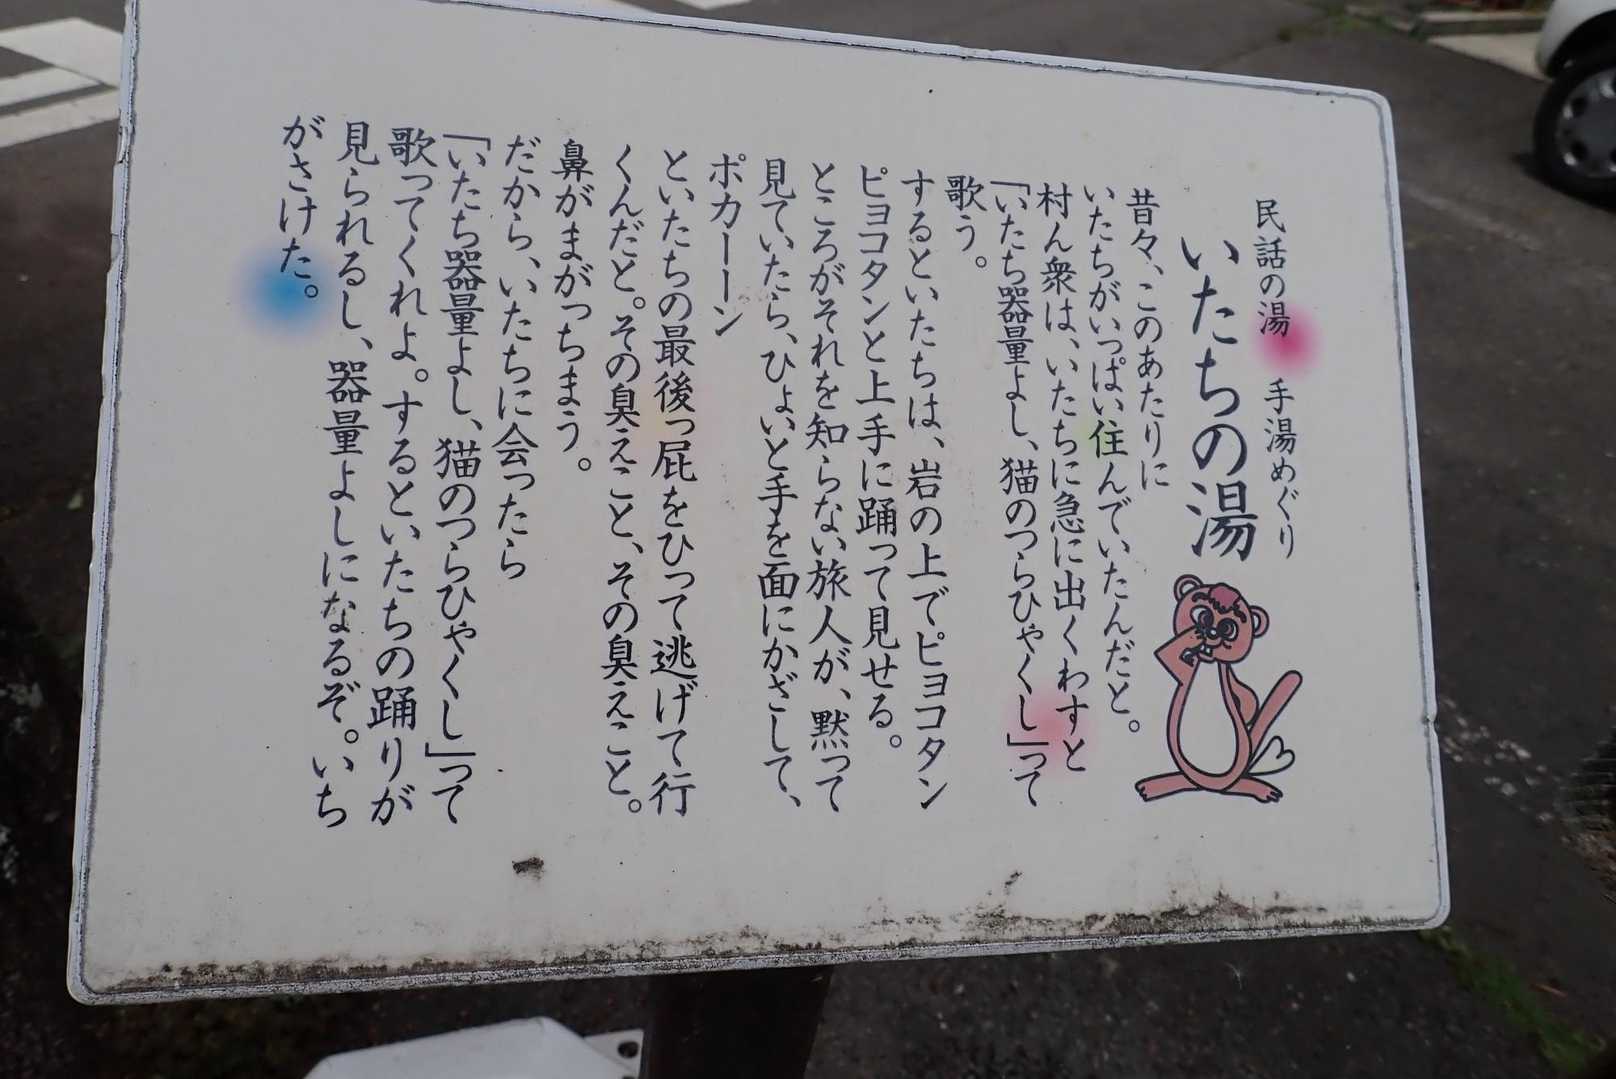 民話の湯 手湯めぐり
いたちの湯
昔々、このあたりに
いたちがいっぱい住んでいたんだと。
村ん衆は、いたちに急に出くわすと
「いたち器量よし、猫のつらひゃくし」って
歌う。
するといたちは、岩の上でピヨコタン
ピヨコタンと上手に踊って見せる。
ところがそれを知らない旅人が、黙って
見ていたら、ひょいと手を面にかざして、
ポカーーン
といたちの最後っ屁をひって逃げて行
くんだと。その臭えこと、その臭えこと。
鼻がまがっちまう。
だから、いたちに会ったら
「いたち器量よし、猫のつらひゃくし」って
歌ってくれよ。するといたちの踊りが
見られるし、器量よしになるぞ。いち
がさけた。